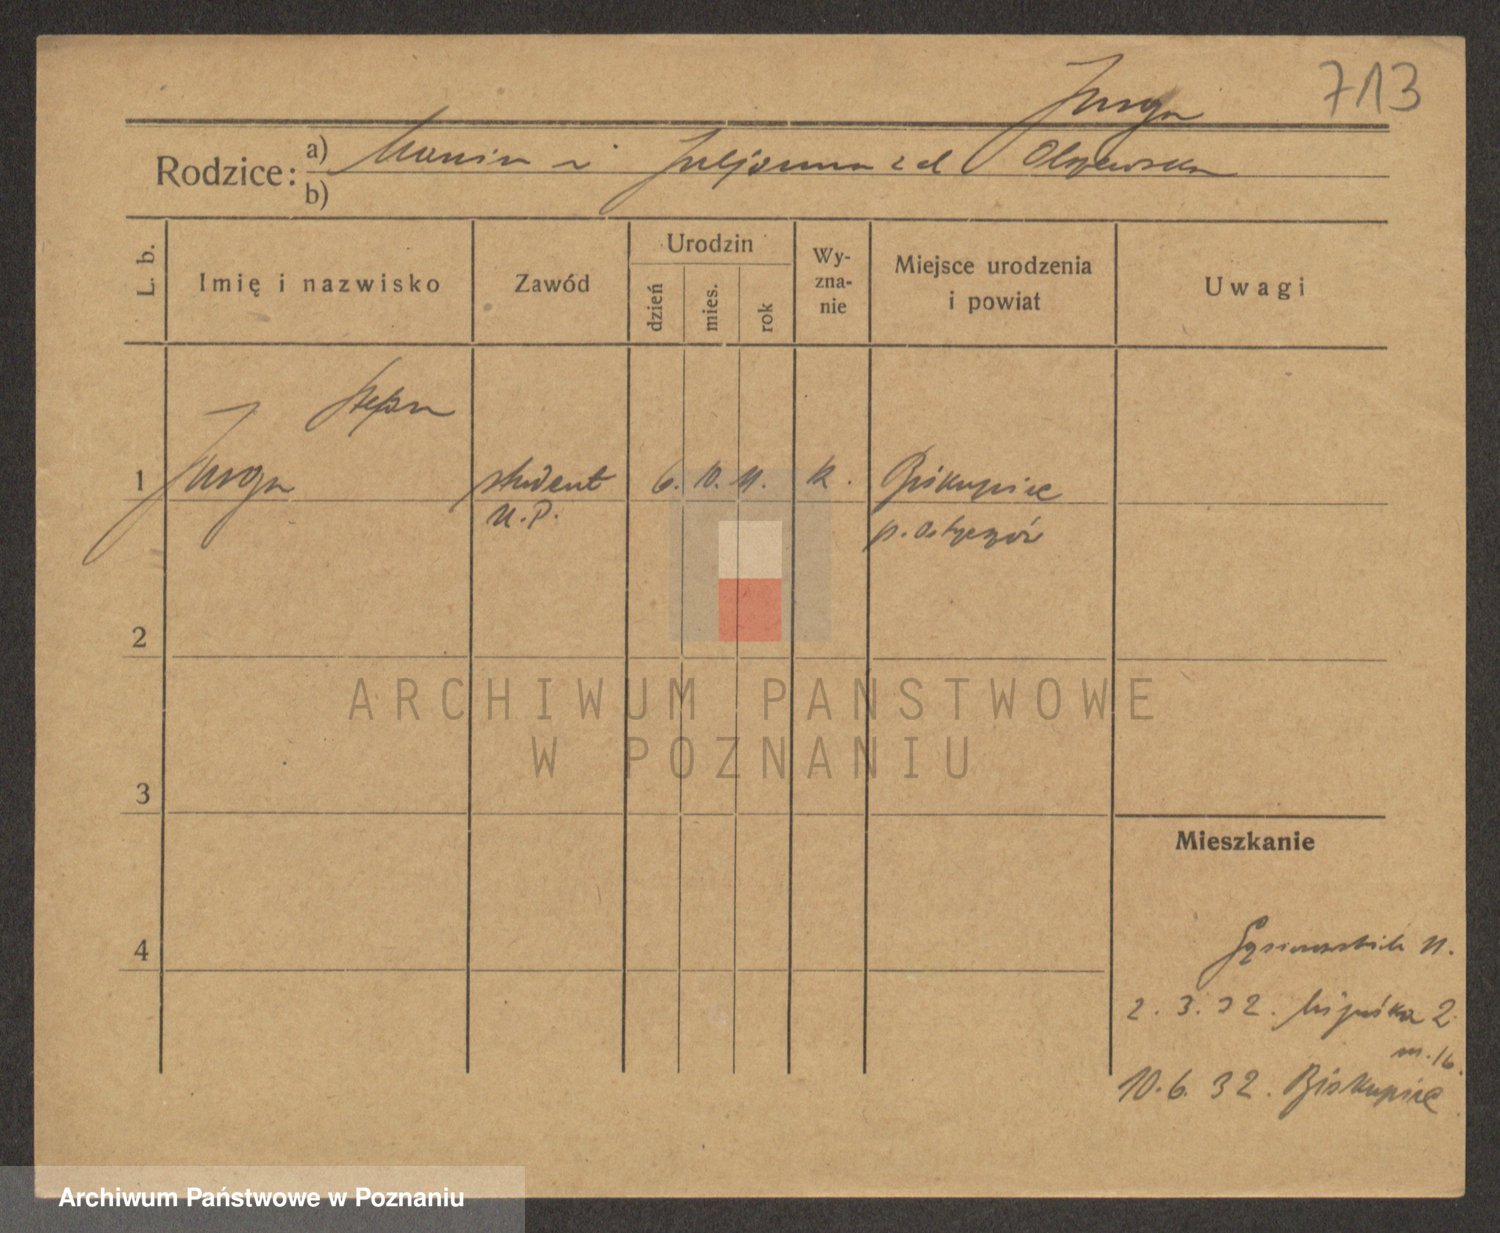 713
Jurga
Rodzice: a) Marcin i Juljanna z d Olszewska
b)
L. b.
Imię i nazwisko
Zawód
Urodzin
dzień
mies.
rok
Wy-
zna-
nie
Miejsce urodzenia
i powiat
Uwagi
Stefan
1 Jurga student 6. 10. 11. k. Biskupice
U. P. p. Ostrzeszów
2
ARCHIWUM PAŃSTWOWE
W POZNANIU
3
Mieszkanie
4
Gąsiorowskich 11.
2. 3. 32.
m. 16.
10. 6. 32. Biskupice
Archiwum Państwowe w Poznaniu